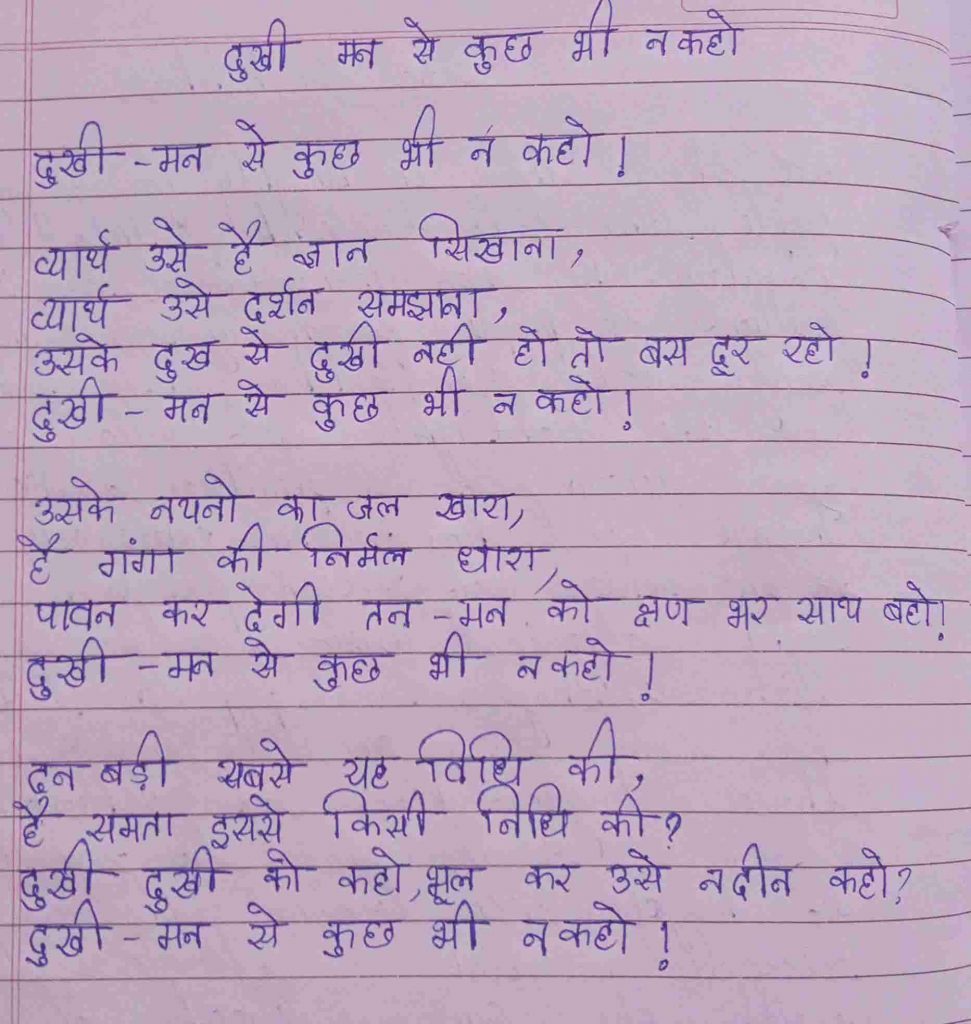 दुखी मन से कुछ भी न कहो
दुखी -मन से कुछ भी न कहो!
व्यार्थ उसे है ज्ञान सिखाना,
व्यार्थ उसे दर्शन समझाना,
उसके दुख से दुखी नही हो तो बस दूर रहो!
दुखी - मन से कुछ भी न कहो!
उसके नयनो का जल खारा,
है गंगा की निर्मल धारा,
पावन कर देगी तन -मन को क्षण भर साथ बहो!
दुखी -मन से कुछ भी न कहो!
देन बड़ी सबसे यह विधि की,
है समता इससे किसी निधि की?
दुखी दुखी को कहो, भूल कर उसे न दीन कहो?
दुखी - मन से कुछ भी न कहो!